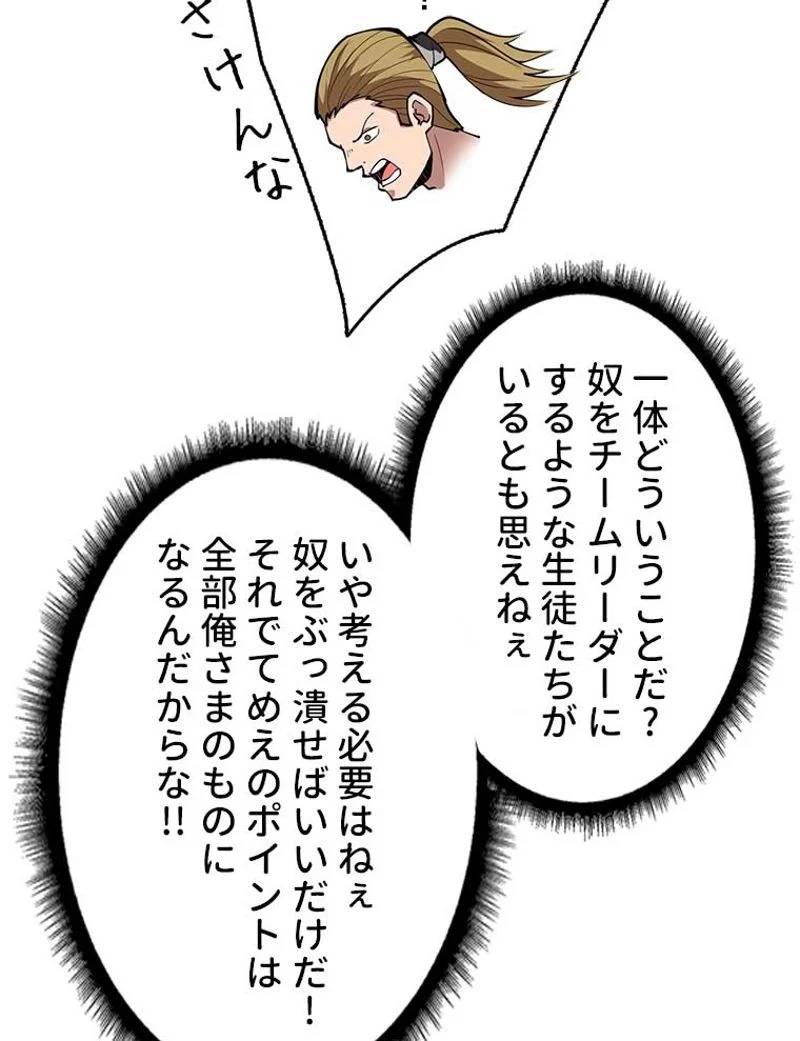 !
さけんな
一体どういうことだ?
奴をチームリーダーに
するような生徒たちが
いるとも思えねぇ
いや考える必要はねぇ
奴をぶっ潰せばいいだけだ!
それでてめえのポイントは
全部俺さまのものに
なるんだからな!!